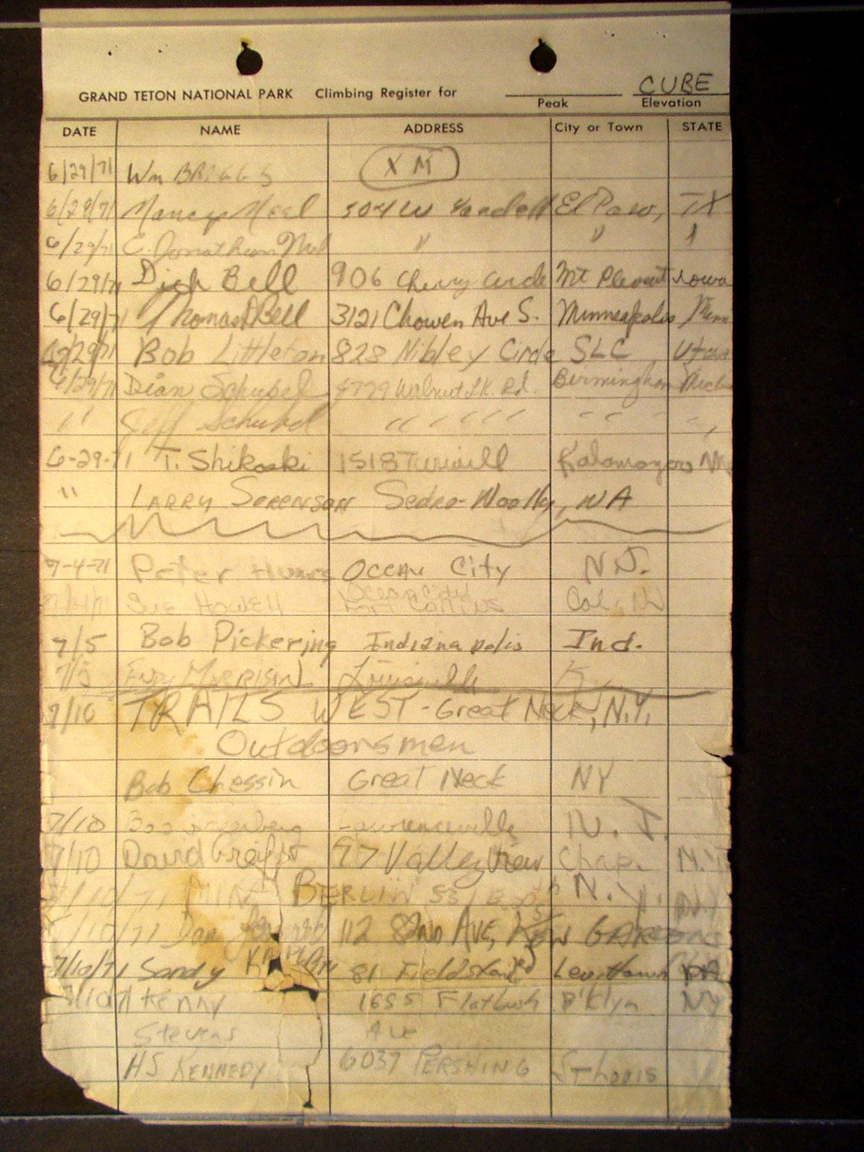 CUBE
GRAND TETON NATIONAL PARK Climbing Register for
Peak Elevation
DATE NAME ADDRESS City or Town STATE
6/29/71 Wm BRIGGS XM
6/29/71 Nancy 504 W Yandell El Paso, TX
6/29/71 E. Jonathan " "
6/29/71 Dick Bell 906 Cherry Circle Mt Pleasant Iowa
6/29/71 Thomas D Bell 3121 Chowen Ave S. Minneapolis Minn
6/29/71 Bob Littleton 828 Nibley Circle SLC Utah
6/29/71 Dian Schubel 4779 Walnut Lk. Rd. Birmingham Mich
" Jeff " " " " " "
6-29-71 T. Shikoski 1518 Kalamazoo
" LARRY SORENSON Sedro-Woolly, WA
7-4-71 Peter Ocean City N.J.
Sue HOWELL Ocean City
FORT COLLINS Col.
7/5 Bob Pickering Indianapolis Ind.
7/5 MORRISON Louisville K
7/10 TRAILS WEST - Great Neck, N.Y.
Outdoorsmen
Bob Chessin Great Neck NY
7/10 Lawrenceville N.J.
7/10 David 97 Valley View Chap. N.Y.
7/10/71 BERLIN 55 N.Y. NY
7/10/71 Dan 112 82ND AVE, KEW GARDENS
7/10/71 Sandy KAPLAN 81 Levittown PA
KENNY 1655 Flatbush B'klyn NY
Stevens Ave
HS KENNEDY 6037 PERSHING St Louis